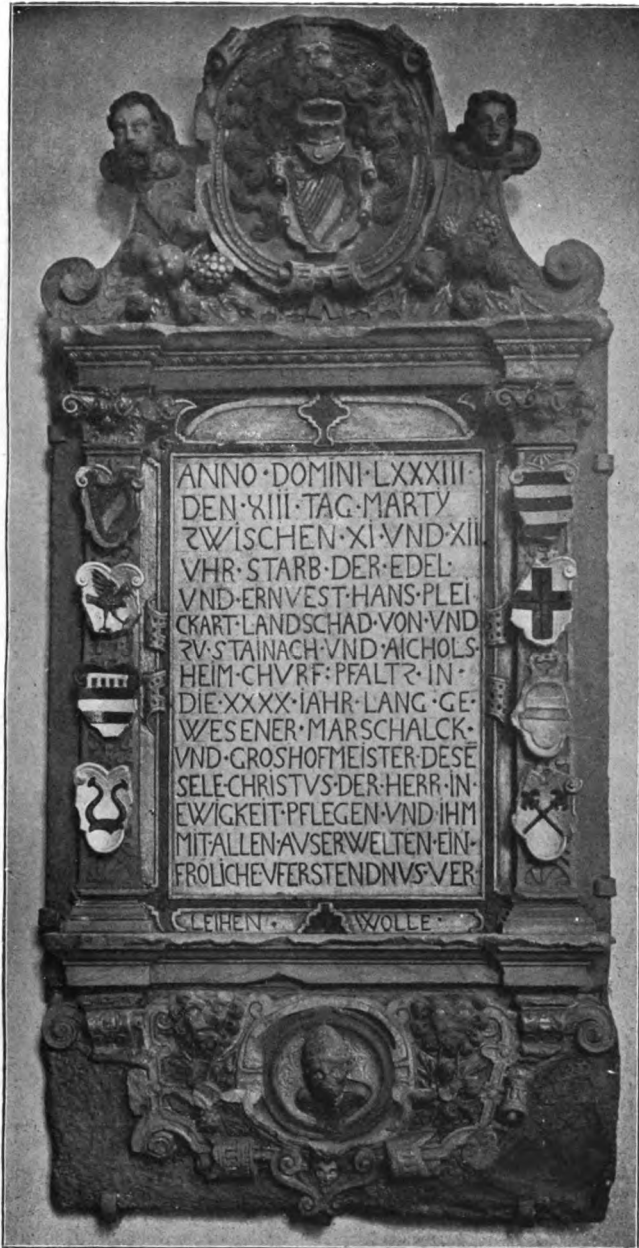 ANNO·DOMINI·LXXXIII·
DEN·XIII·TAG·MARTY
ZWISCHEN·XI·VND·XII
VHR·STARB·DER·EDEL·
VND·ERNVEST·HANS·PLEI
CKART·LANDSCHAD·VON·VND
ZV·STAINACH·VND·AICHOLS·
HEIM·CHVRF:PFALTZ·IN·
DIE·XXXX·IAHR·LANG·GE·
WESENER·MARSCHALCK·
VND·GROSHOFMEISTER·DESĒ
SELE·CHRISTVS·DER·HERR·IN·
EWIGKEIT·PFLEGEN·VND·IHM
MIT·ALLEN·AVSERWELTEN·EIN·
FRÖLICHE·VFERSTENDNVS·VER·
LEIHEN· WOLLE·